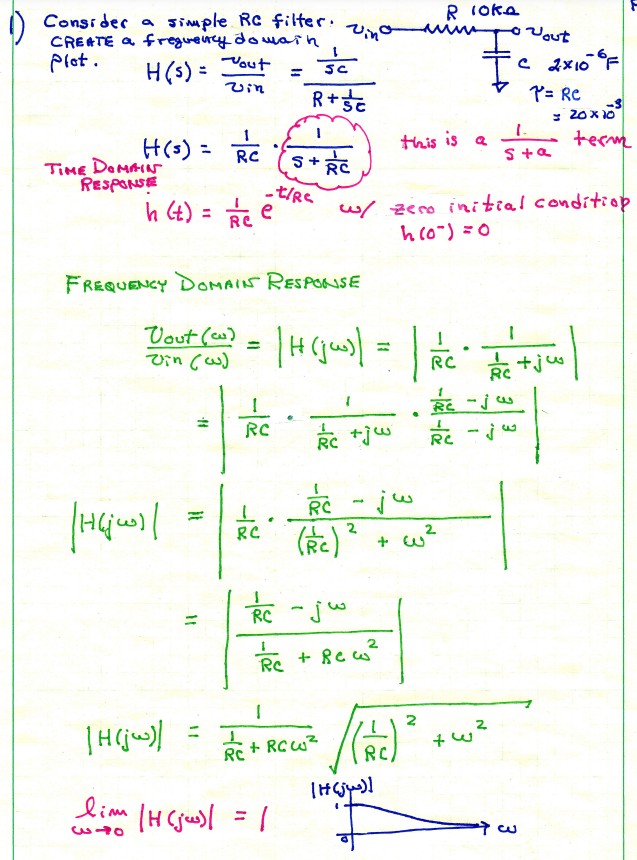 1) Consider a simple RC filter.
CREATE a frequency domain
plot.
R 10KΩ
Vin
Vout
C 2×10⁻⁶F
τ = RC
= 20×10⁻³
H(s) = Vout/Vin = (1/SC)/(R + 1/SC)
H(s) = 1/RC · 1/(S + 1/RC)
this is a 1/(s+a) term
TIME DOMAIN
RESPONSE
h(t) = 1/RC e^(-t/RC) w/ zero initial condition
h(0⁻) = 0
FREQUENCY DOMAIN RESPONSE
Vout(ω)/Vin(ω) = |H(jω)| = |1/RC · 1/(1/RC + jω)|
= |1/RC · 1/(1/RC + jω) · (1/RC - jω)/(1/RC - jω)|
|H(jω)| = |1/RC · (1/RC - jω)/((1/RC)² + ω²)|
= |(1/RC - jω)/(1/RC + RCω²)|
|H(jω)| = 1/(1/RC + RCω²) √((1/RC)² + ω²)
lim ω→0 |H(jω)| = 1
|H(jω)|
1
0
ω